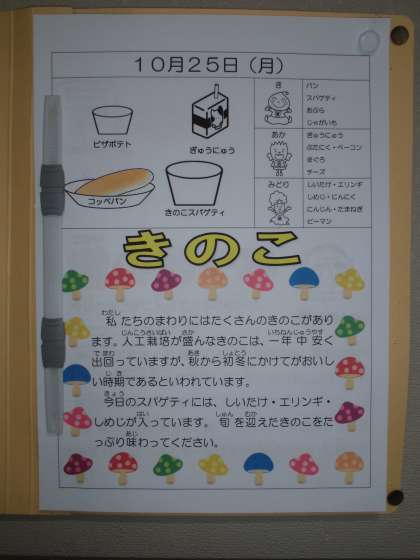 10月25日（月）
ピザポテト
ぎゅうにゅう
コッペパン
きのこスパゲティ
き
パン
スパゲティ
あぶら
じゃがいも
あか
ぎゅうにゅう
ぶたにく・ベーコン
まぐろ
チーズ
みどり
しいたけ・エリンギ
しめじ・にんにく
にんじん・たまねぎ
ピーマン
きのこ
わたし
私たちのまわりにはたくさんのきのこがあり
じんこうさいばい さか いちねんじゅうやす
ます。人工栽培が盛んなきのこは、一年中安く
でまわ あき しょとう
出回っていますが、秋から初冬にかけてがおいし
じき
い時期であるといわれています。
きょう
今日のスパゲティには、しいたけ・エリンギ・
はい しゅん むか
しめじが入っています。旬を迎えたきのこをた
あじ
っぷり味わってください。